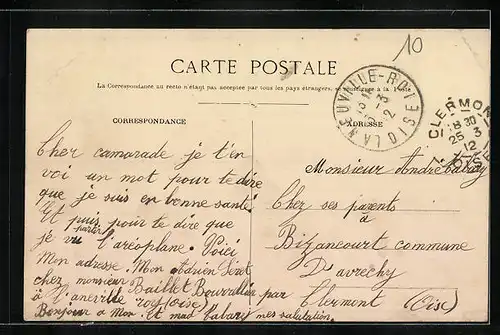 10
CARTE POSTALE
La Correspondance au recto n'étant pas acceptée par tous les pays étrangers, se renseigner à la Poste
CORRESPONDANCE
ADRESSE
LANEUVILLE-ROY
OISE
CLERMONT
8 30
25 3
12
OISE
Cher camarade je t'en
voi un mot pour te dire
que je suis en bonne santé
Et puis pour te dire que
je parti vu l'aréoplane. Voici
Mon adresse. Mon Adrien
chez monsieur Baillet Bourrellier
à l'aneville royfoise
Bonjour a Mon. et mad Cabary mes salutation.
Monsieur André Cabary
Chez ses parents
à
Bizancourt commune
D'avrechy
par Clermont (Oise)